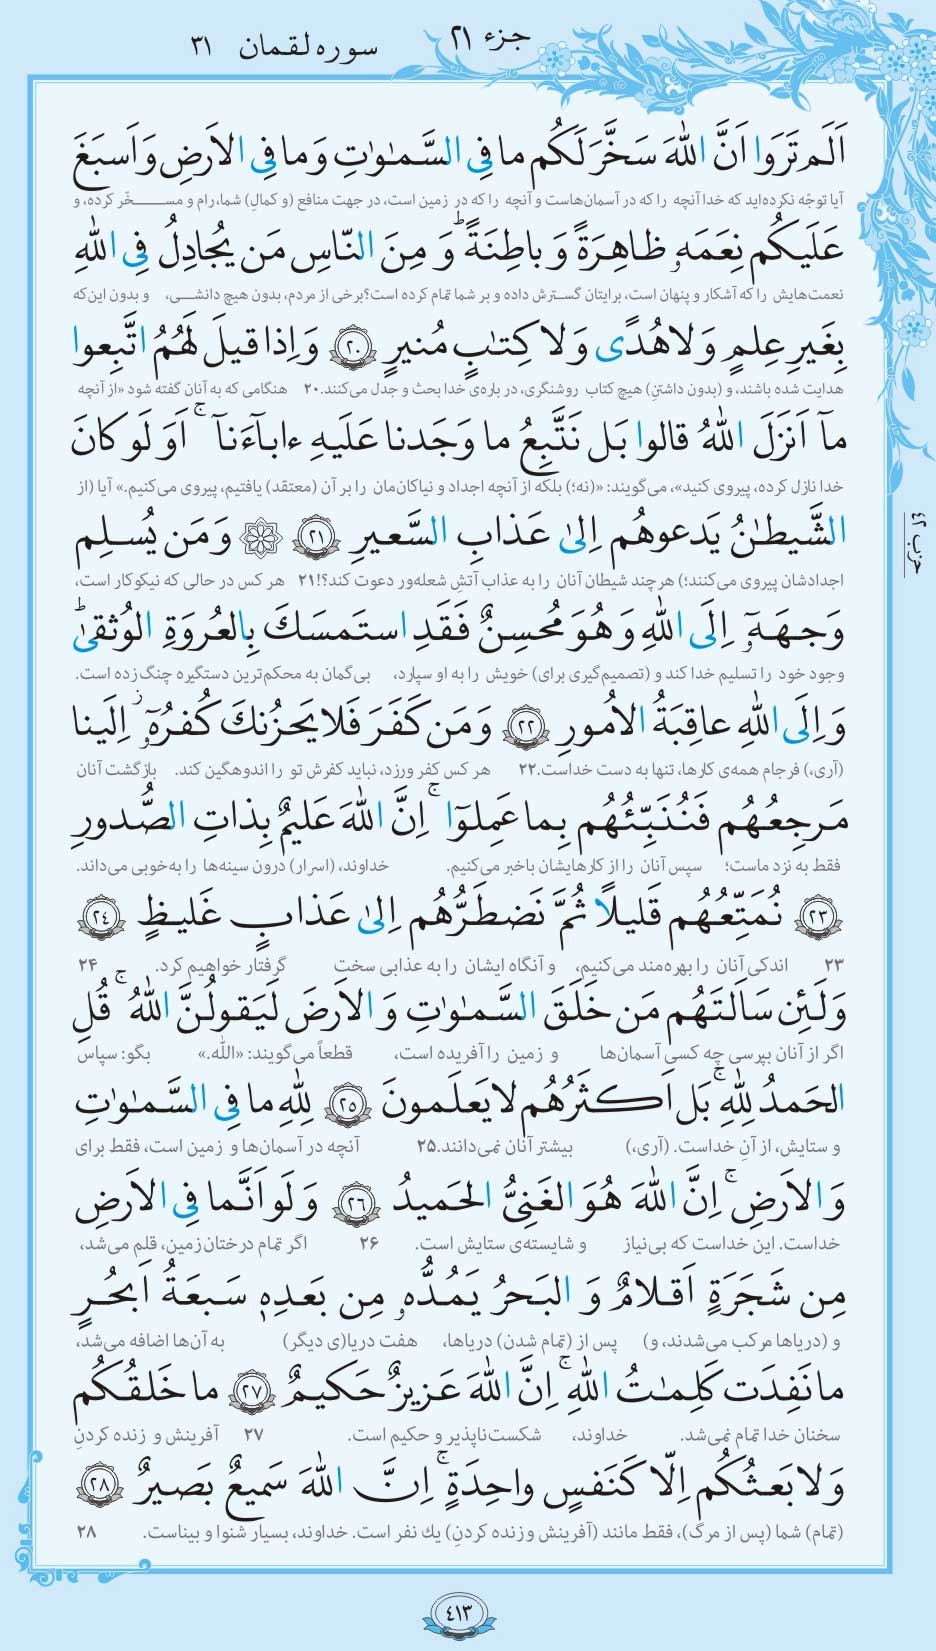 جزء ۲۱
سوره لقمان ۳۱
اَلَم تَرَوا اَنَّ اللّٰهَ سَخَّرَ لَكُم ما فِى السَّمٰوٰتِ وَ ما فِى الاَرضِ وَ اَسبَغَ
آیا توجّه نکرده‌اید که خدا آنچه را که در آسمان‌هاست و آنچه را که در زمین است، در جهت منافع (و کمالِ) شما، رام و مسخّر کرده، و
عَلَيكُم نِعَمَهٗ ظاهِرَةً وَ باطِنَةً ؕ وَ مِنَ النّاسِ مَن يُجادِلُ فِى اللّٰهِ
نعمت‌هایش را که آشکار و پنهان است، برایتان گسترش داده و بر شما تمام کرده است؟ برخی از مردم، بدون هیچ دانشی، و بدون این‌که
بِغَيرِ عِلمٍ وَ لا هُدًى وَ لا كِتٰبٍ مُنيرٍ ﴿۲۰﴾ وَ اِذا قيلَ لَهُمُ اتَّبِعوا
هدایت شده باشند، و (بدون داشتنِ) هیچ کتاب روشنگری، درباره‌ی خدا بحث و جدل می‌کنند. ۲۰ هنگامی که به آنان گفته شود «از آنچه
مآ اَنزَلَ اللّٰهُ قالوا بَل نَتَّبِعُ ما وَجَدنا عَلَيهِ ءابآءَنآ ۚ اَوَ لَو كانَ
خدا نازل کرده، پیروی کنید»، می‌گویند: «(نه؛) بلکه از آنچه اجداد و نیاکان‌مان را بر آن (معتقد) یافتیم، پیروی می‌کنیم.» آیا (از
الشَّيطٰنُ يَدعوهُم اِلىٰ عَذابِ السَّعيرِ ﴿۲۱﴾ وَ مَن يُسلِم
اجدادشان پیروی می‌کنند؛) هرچند شیطان آنان را به عذاب آتشِ شعله‌ور دعوت کند؟! ۲۱ هر کس در حالی که نیکوکار است،
وَجهَهٗۤ اِلَى اللّٰهِ وَ هُوَ مُحسِنٌ فَقَدِ استَمسَكَ بِالعُروَةِ الوُثقىٰ ؕ
وجود خود را تسلیم خدا کند و (تصمیم‌گیری برای) خویش را به او سپارد، بی‌گمان به محکم‌ترین دستگیره چنگ زده است.
وَ اِلَى اللّٰهِ عاقِبَةُ الاُمورِ ﴿۲۲﴾ وَ مَن كَفَرَ فَلا يَحزُنكَ كُفرُهٗۤ ۚ اِلَينا
(آری،) فرجام همه‌ی کارها، تنها به دست خداست. ۲۲ هر کس کفر ورزد، نباید کفرش تو را اندوهگین کند. بازگشت آنان
مَرجِعُهُم فَنُنَبِّئُهُم بِما عَمِلوۤا ۚ اِنَّ اللّٰهَ عَليمٌ بِذاتِ الصُّدورِ
فقط به نزد ماست؛ سپس آنان را از کارهایشان باخبر می‌کنیم. خداوند، (اسرار) درون سینه‌ها را به‌خوبی می‌داند.
﴿۲۳﴾ نُمَتِّعُهُم قَليلًا ثُمَّ نَضطَرُّهُم اِلىٰ عَذابٍ غَليظٍ ﴿۲۴﴾
۲۳ اندکی آنان را بهره‌مند می‌کنیم، و آنگاه ایشان را به عذابی سخت گرفتار خواهیم کرد. ۲۴
وَ لَئِن سَاَلتَهُم مَن خَلَقَ السَّمٰوٰتِ وَ الاَرضَ لَيَقولُنَّ اللّٰهُ ۚ قُلِ
اگر از آنان بپرسی چه کسی آسمان‌ها و زمین را آفریده است، قطعاً می‌گویند: «الله.» بگو: سپاس
الحَمدُ لِلّٰهِ ۚ بَل اَكثَرُهُم لا يَعلَمونَ ﴿۲۵﴾ لِلّٰهِ ما فِى السَّمٰوٰتِ
و ستایش، از آنِ خداست. (آری،) بیشتر آنان نمی‌دانند. ۲۵ آنچه در آسمان‌ها و زمین است، فقط برای
وَ الاَرضِ ۚ اِنَّ اللّٰهَ هُوَ الغَنِىُّ الحَميدُ ﴿۲۶﴾ وَ لَو اَنَّما فِى الاَرضِ
خداست. این خداست که بی‌نیاز و شایسته‌ی ستایش است. ۲۶ اگر تمام درختان زمین، قلم می‌شد،
مِن شَجَرَةٍ اَقلامٌ وَ البَحرُ يَمُدُّهٗ مِن بَعدِهٖ سَبعَةُ اَبحُرٍ
و (دریاها مرکب می‌شدند، و) پس از (تمام شدن) دریاها، هفت دریا(ی دیگر) به آن‌ها اضافه می‌شد،
ما نَفِدَت كَلِمٰتُ اللّٰهِ ۚ اِنَّ اللّٰهَ عَزيزٌ حَكيمٌ ﴿۲۷﴾ ما خَلقُكُم
سخنان خدا تمام نمی‌شد. خداوند، شکست‌ناپذیر و حکیم است. ۲۷ آفرینش و زنده کردنِ
وَ لا بَعثُكُم اِلّا كَنَفسٍ واحِدَةٍ ۚ اِنَّ اللّٰهَ سَميعٌ بَصيرٌ ﴿۲۸﴾
(تمام) شما (پس از مرگ)، فقط مانند (آفرینش و زنده کردنِ) یك نفر است. خداوند، بسیار شنوا و بیناست. ۲۸
حزب ۴۲
۴۱۳